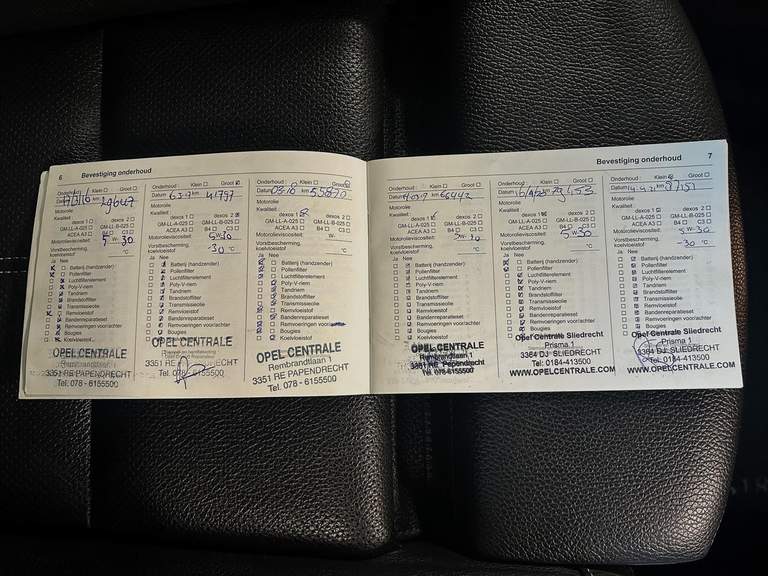 6 Bevestiging onderhoud
Onderhoud: Klein Groot
Datum km
Motorolie
Kwaliteit:
dexos 1 dexos 2
GM-LL-A-025 GM-LL-B-025
ACEA A3 B4 C3
Motorolieviscositeit: 5 W-30
Vorstbescherming,
koelvloeistof °C
Ja Nee
Batterij (handzender)
Pollenfilter
Luchtfilterelement
Poly-V-riem
Tandriem
Brandstoffilter
Transmissieolie
Remvloeistof
Bandenreparatieset
Remvoeringen voor/achter
Bougies
Koelvloeistof
OPEL CENTRALE
3351 RE PAPENDRECHT
Tel. 078 - 6155500
Onderhoud: Klein Groot
Datum km 41797
Motorolie
Kwaliteit:
dexos 1 dexos 2
GM-LL-A-025 GM-LL-B-025
ACEA A3 B4 C3
Motorolieviscositeit: 5W-30
Vorstbescherming,
koelvloeistof -30 °C
Ja Nee
Batterij (handzender)
Pollenfilter
Luchtfilterelement
Poly-V-riem
Tandriem
Brandstoffilter
Transmissieolie
Remvloeistof
Bandenreparatieset
Remvoeringen voor/achter
Bougies
OPEL CENTRALE
3351 RE PAPENDRECHT
Tel. 078 - 6155500
Onderhoud: Klein Groot
Datum km 55870
Motorolie
Kwaliteit:
dexos 1 dexos 2
GM-LL-A-025 GM-LL-B-025
ACEA A3 B4 C3
Motorolieviscositeit: W-
Vorstbescherming,
koelvloeistof °C
Ja Nee
Batterij (handzender)
Pollenfilter
Luchtfilterelement
Poly-V-riem
Tandriem
Brandstoffilter
Transmissieolie
Remvloeistof
Bandenreparatieset
Remvoeringen voor/achter
Bougies
Koelvloeistof
OPEL CENTRALE
Rembrandtlaan 1
3351 RE PAPENDRECHT
Tel. 078 - 6155500
Bevestiging onderhoud 7
Onderhoud: Klein Groot
Datum km 66442
Motorolie
Kwaliteit:
dexos 1 dexos 2
GM-LL-A-025 GM-LL-B-025
ACEA A3 B4 C3
Motorolieviscositeit: 5W-30
Vorstbescherming,
koelvloeistof °C
Ja Nee
Batterij (handzender)
Pollenfilter
Luchtfilterelement
Poly-V-riem
Tandriem
Brandstoffilter
Transmissieolie
Remvloeistof
Bandenreparatieset
Remvoeringen voor/achter
Bougies
Koelvloeistof
OPEL CENTRALE
Rembrandtlaan 1
3351 RE Papendrecht
Tel. 078-6155500
Onderhoud: Klein Groot
Datum km
Motorolie
Kwaliteit:
dexos 1 dexos 2
GM-LL-A-025 GM-LL-B-025
ACEA A3 B4 C3
Motorolieviscositeit: 5W-30
Vorstbescherming,
koelvloeistof °C
Ja Nee
Batterij (handzender)
Pollenfilter
Luchtfilterelement
Poly-V-riem
Tandriem
Brandstoffilter
Transmissieolie
Remvloeistof
Bandenreparatieset
Remvoeringen voor/achter
Bougies
Opel Centrale Sliedrecht
Prisma 1
3364 DJ SLIEDRECHT
Tel. 0184-413500
WWW.OPELCENTRALE.COM
Onderhoud: Klein Groot
Datum km
Motorolie
Kwaliteit:
dexos 1 dexos 2
GM-LL-A-025 GM-LL-B-025
ACEA A3 B4 C3
Motorolieviscositeit: 5W-30
Vorstbescherming,
koelvloeistof -30 °C
Ja Nee
Batterij (handzender)
Pollenfilter
Luchtfilterelement
Poly-V-riem
Tandriem
Brandstoffilter
Transmissieolie
Remvloeistof
Bandenreparatieset
Remvoeringen voor/achter
Bougies
Opel Centrale Sliedrecht
Prisma 1
3364 DJ SLIEDRECHT
Tel. 0184-413500
WWW.OPELCENTRALE.COM